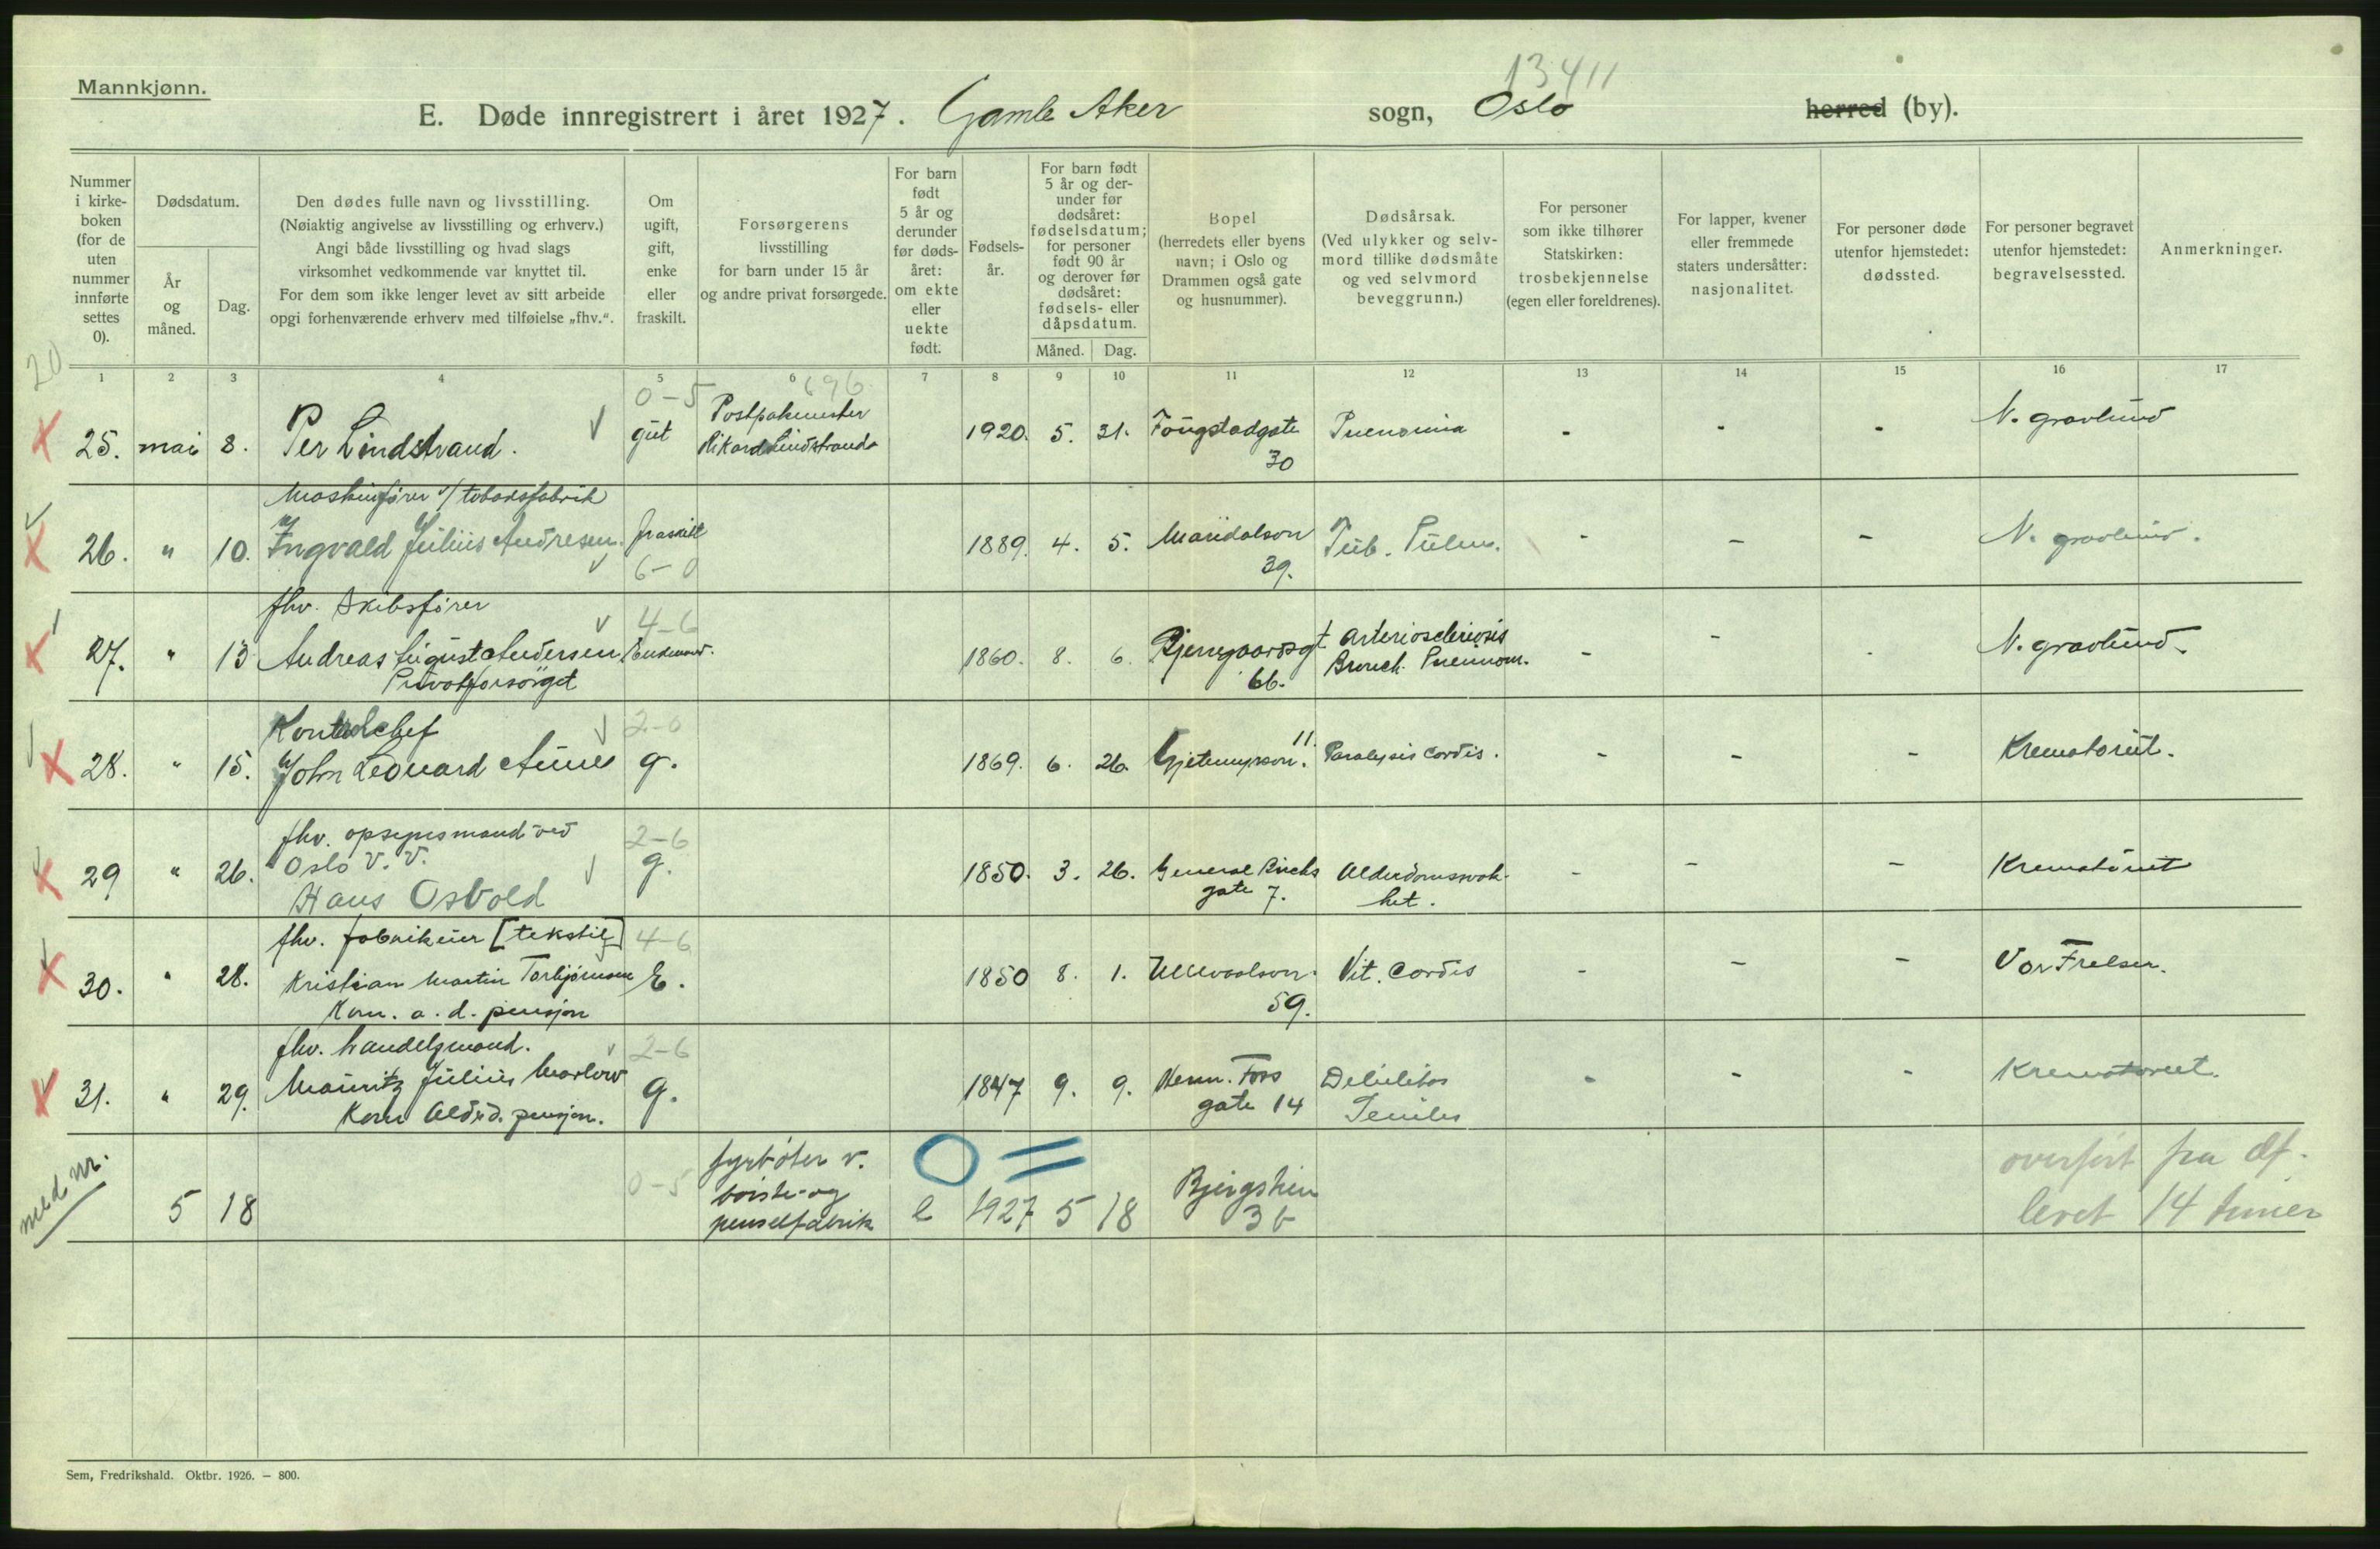 13411
Mannkjønn.
E. Døde innregistrert i året 1927. Gamle Aker sogn, Oslo herred (by).
Nummer i kirke-boken (for de uten nummer innførte settes 0).
Dødsdatum.
År og måned.
Dag.
Den dødes fulle navn og livsstilling.
(Nøiaktig angivelse av livsstilling og erhverv.)
Angi både livsstilling og hvad slags
virksomhet vedkommende var knyttet til.
For dem som ikke lenger levet av sitt arbeide
opgi forhenværende erhverv med tilføielse „fhv.“.
Om ugift, gift, enke eller fraskilt.
Forsørgerens
livsstilling
for barn under 15 år
og andre privat forsørgede.
For barn født 5 år og derunder før døds-året: om ekte eller uekte født.
Fødsels-år.
For barn født 5 år og der-under før dødsåret: fødselsdatum; for personer født 90 år og derover før dødsåret: fødsels- eller dåpsdatum.
Måned. Dag.
Bopel
(herredets eller byens
navn; i Oslo og
Drammen også gate
og husnummer).
Dødsårsak.
(Ved ulykker og selv-
mord tillike dødsmåte
og ved selvmord
beveggrunn.)
For personer
som ikke tilhører
Statskirken:
trosbekjennelse
(egen eller foreldrenes).
For lapper, kvener
eller fremmede
staters undersåtter:
nasjonalitet.
For personer døde
utenfor hjemstedet:
dødssted.
For personer begravet
utenfor hjemstedet:
begravelsessted.
Anmerkninger.
20
1 2 3 4 5 6 7 8 9 10 11 12 13 14 15 16 17
0-5 696
25. mai 8. Per Lindstrand. gut Rikard Lindstrands 1920. 5. 31. Fougstadgate 30 Pneumonia - - - N. gravlund
Maskinfører v/ tobaksfabrik
26. " 10. Ingvald Julius Andresen. fraskilt 6-0 1889. 4. 5. Maridalsvn 39. Tub. Pulm. - - - N. gravlund.
fhv. Skibsfører 4-6
27. " 13 Andreas August Andersen Enkemand. 1860. 8. 6. Bjerregaardsgt 66. Arterioscleriosis Bronch. Pneumon. - - - N. gravlund.
Privatforsørget
Kontorchef 2-0
28. " 15. John Leonard Aune g. 1869. 6. 26. Gjetemyrsvn. 11. Paralysis cordis. - - - Krematoriet.
fhv. opsynsmand ved 2-6
Oslo V. V.
29 " 26. Hans Osvold g. 1850. 3. 26. General Birchs gate 7. Alderdomssvak-het. - - - Krematoriet
fhv. fabrikeier [tekstil] 4-6
30. " 28. Kristian Martin Torbjørnsen E. 1850 8. 1. Ullevaalsvn. 59. Vit. Cordis - - - Vor Frelser.
Kom. a. d. pensjon
fhv. handelsmand. 2-6
31. " 29. Mauritz Julius Marlow g. 1847 9. 9. Herm. Foss gate 14 Debilitas Senilis - - - Krematoriet.
Kom Alderd. pensjon.
med nr.
5 18 0-5 fyrbøter v. børste- og penselfabrik e 1927 5 18 Bjergstien 3b overført fra df. levet 14 timer
Sem, Fredrikshald. Oktbr. 1926. – 800.